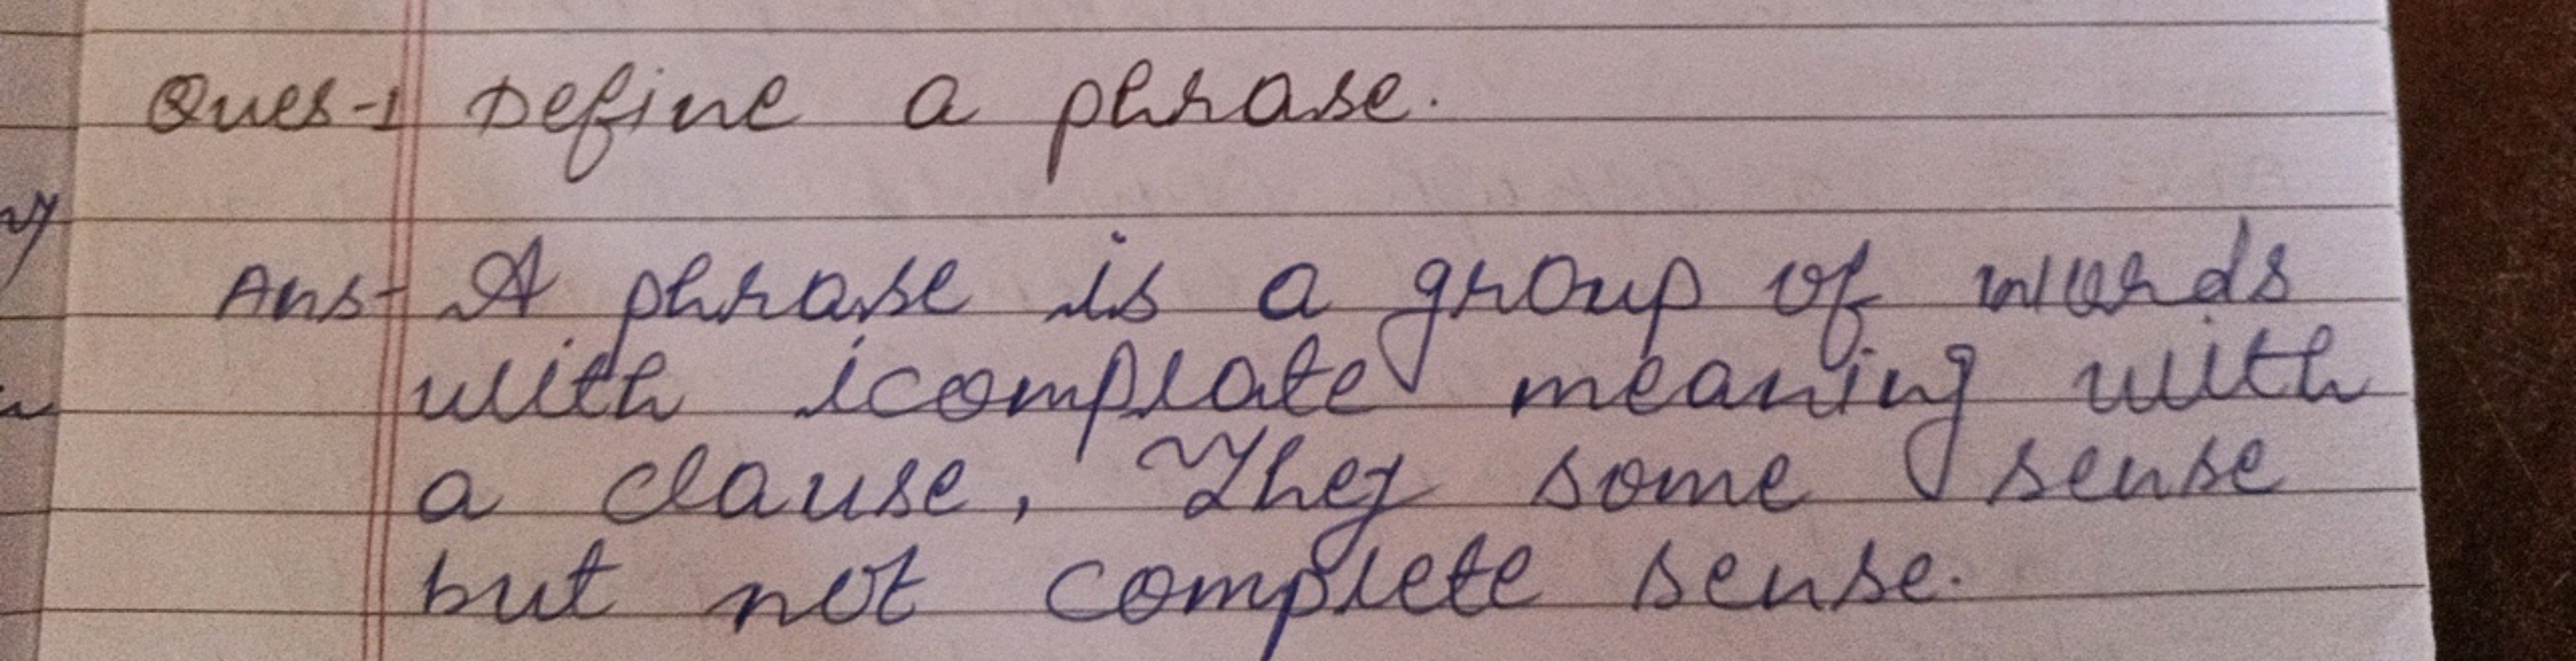 Ques-1 Define a phrase.
Ans- A phrase is a group of words
with icomplate meaning with
a clause, They some sense
but not complete sense.